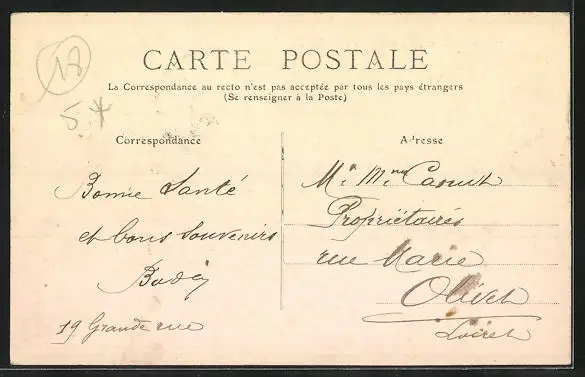 18
5
CARTE POSTALE
La Correspondance au recto n'est pas acceptée par tous les pays étrangers
(Se renseigner à la Poste)
Correspondance
Bonne Santé
et bons Souvenirs
19 Grande rue
Adresse
Mr Mme
Propriétaires
rue Marie
Olivet
Loiret